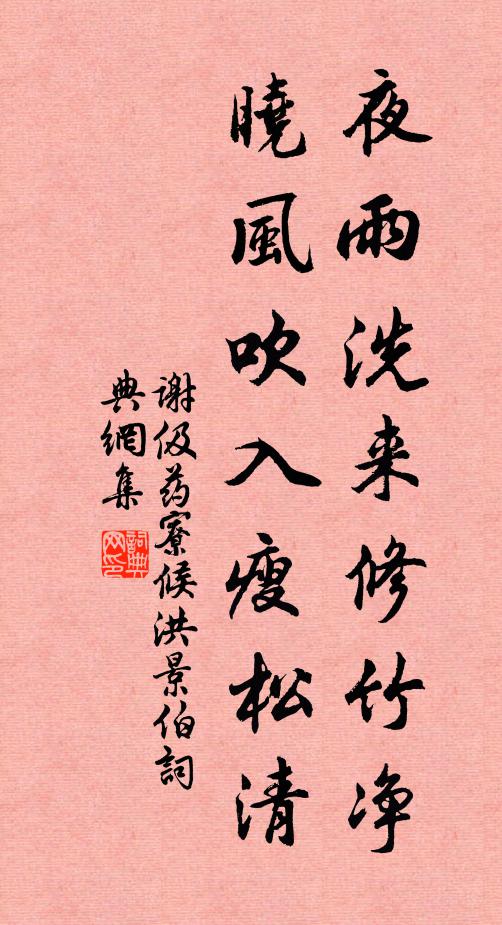 夜雨洗来修竹净
晓風吹入瘦松清
谢伋药寮候洪景伯詞
典網集
詞典网印